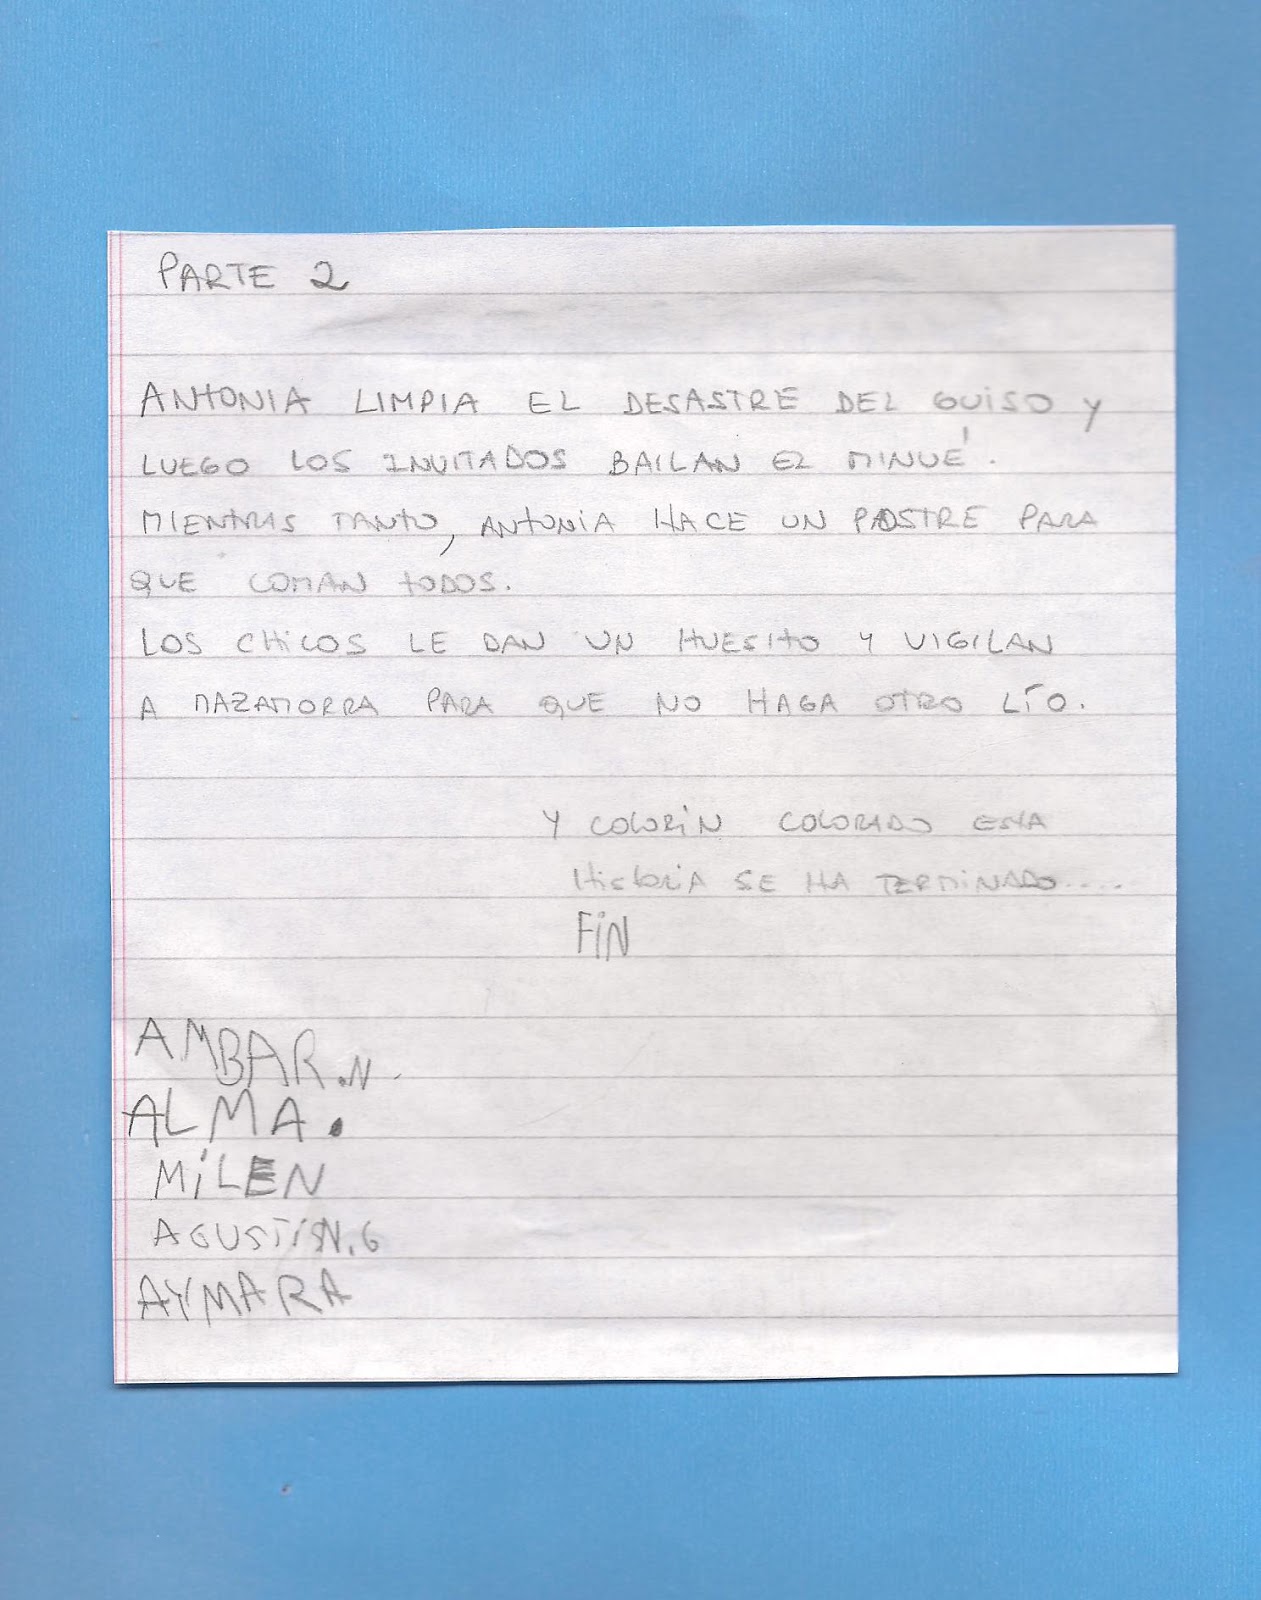 PARTE 2
ANTONIA LIMPIA EL DESASTRE DEL GUISO Y
LUEGO LOS INVITADOS BAILAN EL MINUÉ.
MIENTRAS TANTO, ANTONIA HACE UN POSTRE PARA
QUE COMAN TODOS.
LOS CHICOS LE DAN UN HUESITO Y VIGILAN
A MAZAMORRA PARA QUE NO HAGA OTRO LÍO.
Y COLORÍN COLORADO ESTA
HISTORIA SE HA TERMINADO....
FIN
AMBAR.N.
ALMA.
MILEN
AGUSTIN.G
AYMARA